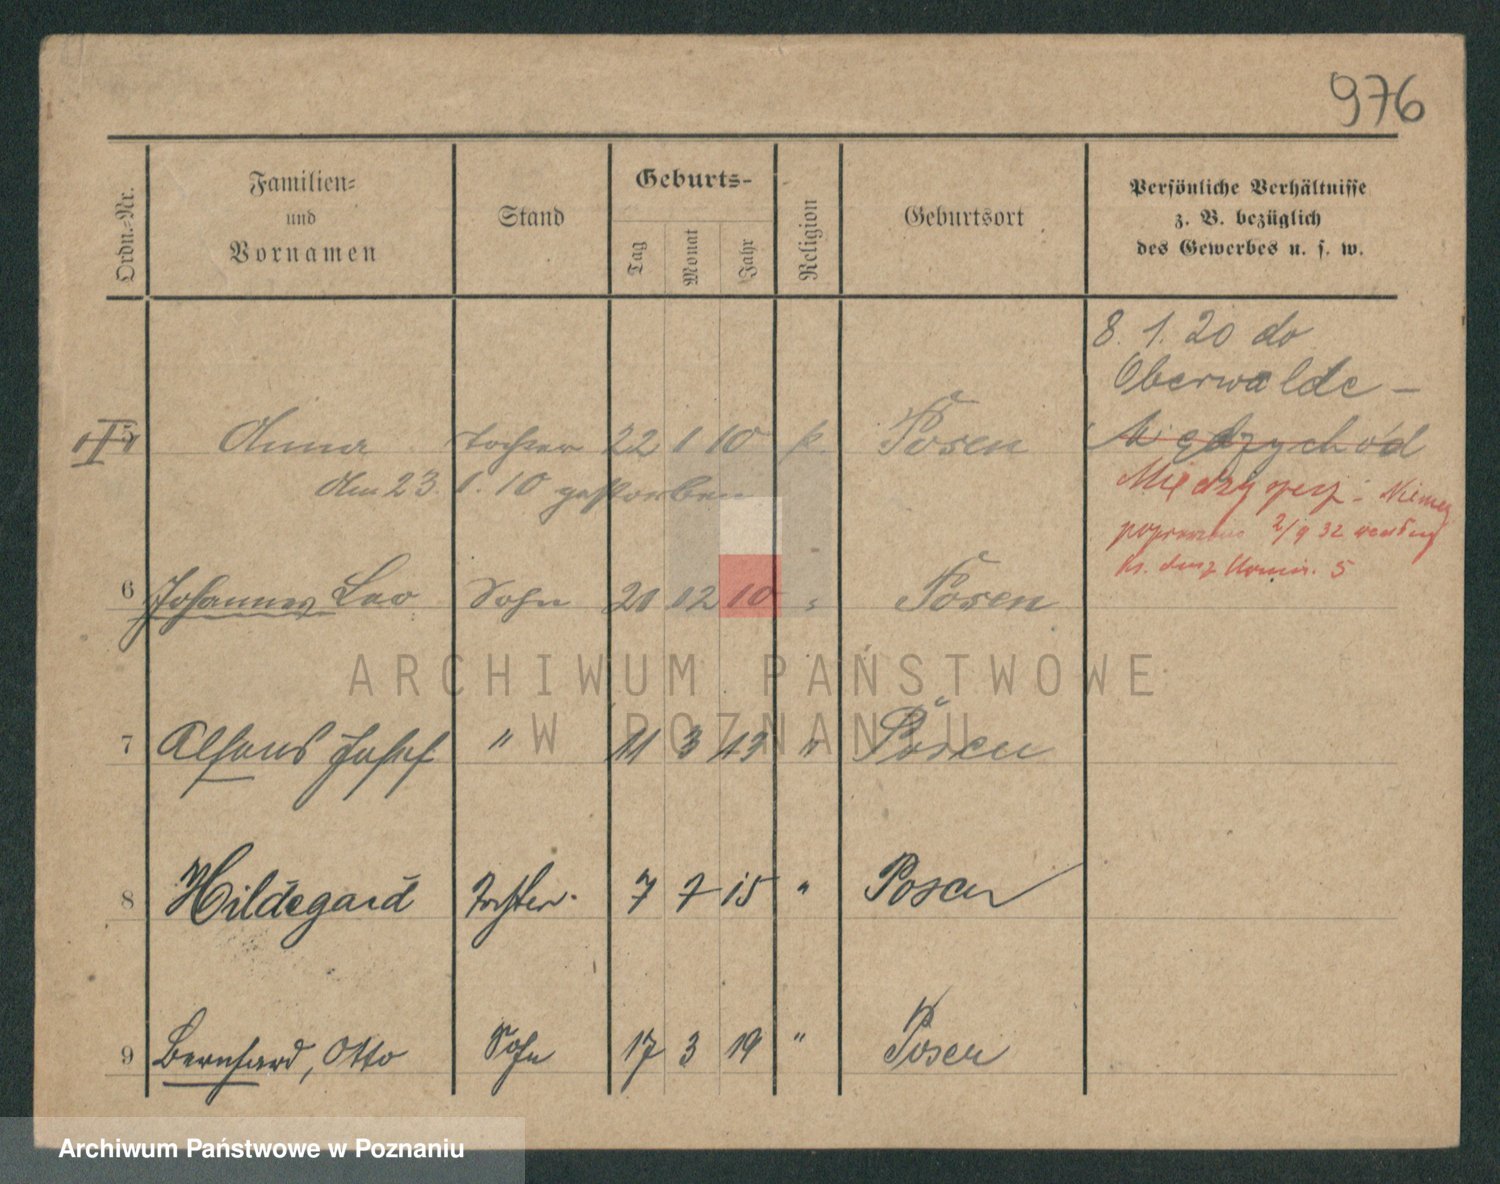 976
Ordn.-Nr.
Familien-
und
Vornamen
Stand
Geburts-
Tag
Monat
Jahr
Religion
Geburtsort
Persönliche Verhältnisse
z. B. bezüglich
des Gewerbes u. s. w.
8. 1. 20 do
Oberwalde -
5 Anna Tochter 22 1 10 k. Posen Międzychód
am 23. 1. 10 gestorben
Międzyrzecz - Niemcy
2/9 32
5
6 Johannes Leo Sohn 20 12 10 " Posen
ARCHIWUM PAŃSTWOWE
W POZNANIU
7 Alfons Josef " 11 3 13 " Posen
8 Hildegard Tochter. 7 7 15 " Posen
9 Bernhard, Otto Sohn 17 3 19 " Posen
Archiwum Państwowe w Poznaniu